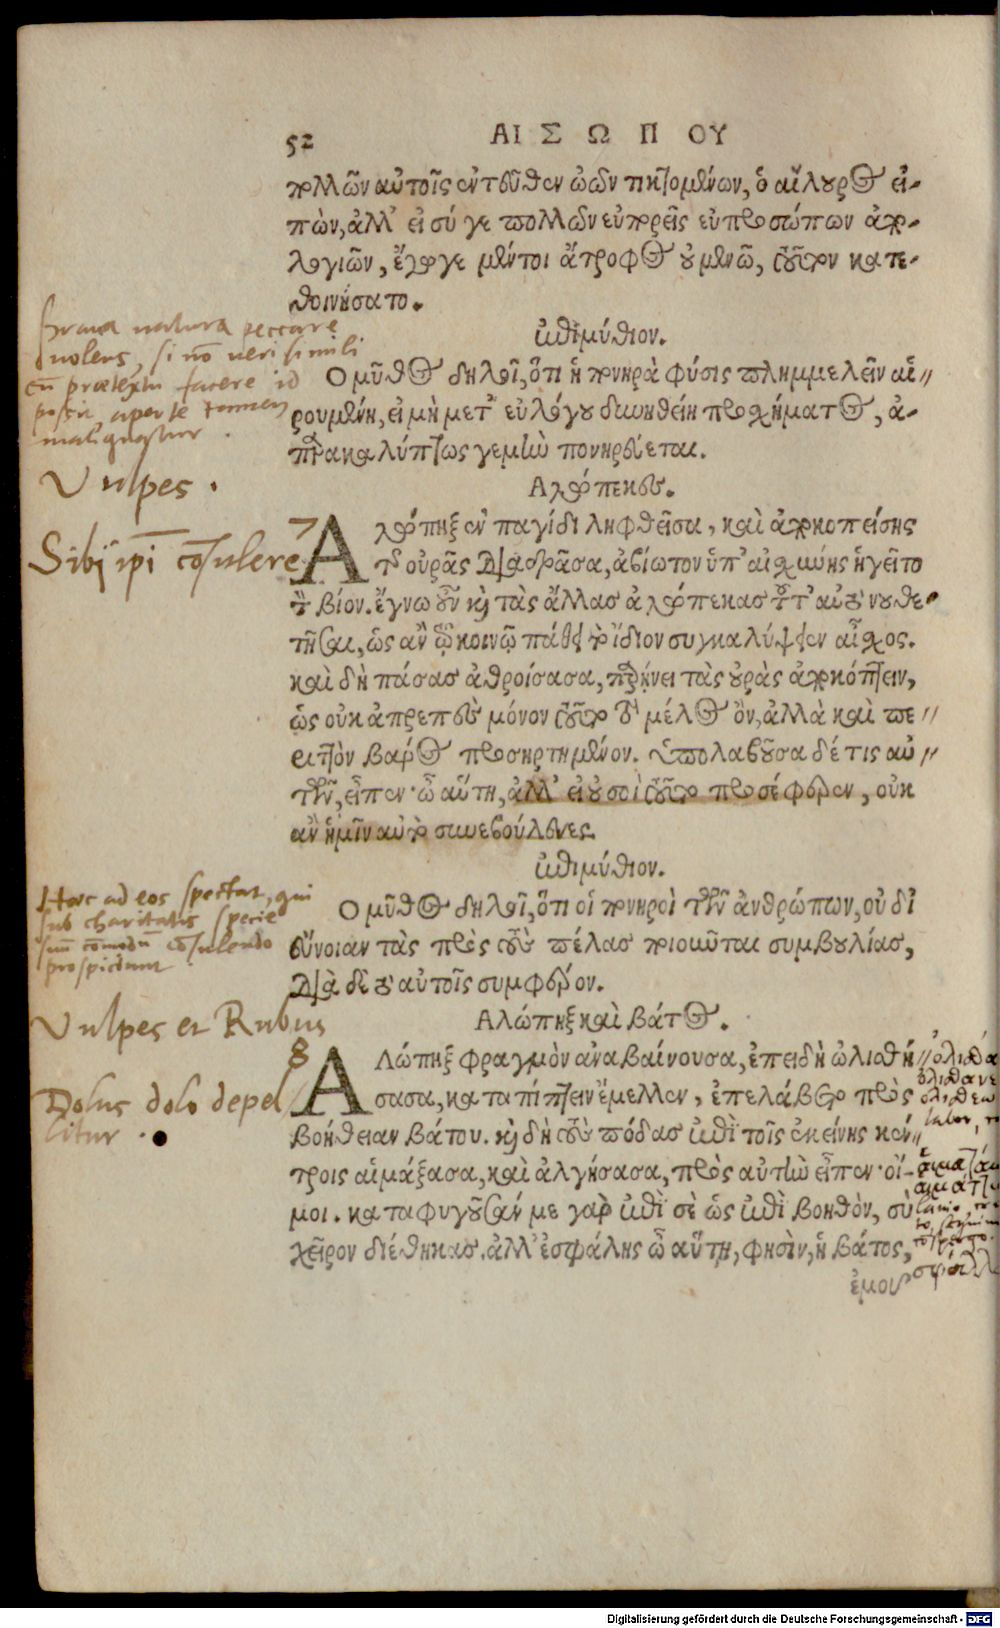 52 ΑΙΣΩΠΟΥ
πολλῶν αὐτοῖς ἐντεῦθεν ὠῶν τικτομένων, ὁ αἴλουρος εἰ-
πὼν, ἀλλ' εἰ σύ γε πολλῶν εὐπορεῖς εὐπροσώπων ἀπο-
λογιῶν, ἔγωγε μέντοι ἄτροφος οὐ μενῶ, τοῦτον κατε-
θοινήσατο.
ἐπιμύθιον.
Ο μῦθος δηλοῖ, ὅτι ἡ πονηρὰ φύσις πλημμελεῖν αἱ
ρουμένη, εἰ μὴ μετ' εὐλόγου δυνηθείη προσχήματος, ἀ-
παρακαλύπτως γε μὴν πονηρεύεται.
Αλώπεκος.
Αλώπηξ ἐν παγίδι ληφθεῖσα, καὶ ἀποκοπείσης
τῆς οὐρᾶς διαδρᾶσα, ἀβίωτον ὑπ' αἰσχύνης ἡγεῖτο
τὸν βίον. ἔγνω οὖν καὶ τὰς ἄλλας ἀλώπεκας τοῦτ' αὐτὸ νουθε-
τῆσαι, ὡς ἂν τῷ κοινῷ πάθει τὸ ἴδιον συγκαλύψειεν αἶσχος.
καὶ δὴ πάσας ἀθροίσασα, παρῄνει τὰς οὐρὰς ἀποκόπτειν,
ὡς οὐκ ἀπρεπὲς μόνον τοῦτο τὸ μέλος ὂν, ἀλλὰ καὶ πε
ριττὸν βάρος προσηρτημένον. ὑπολαβοῦσα δέ τις αὐ
τῶν, εἶπεν· ὦ αὕτη, ἀλλ' εἰ οὐ σοὶ τοῦτο προσέφερεν, οὐκ
ἂν ἡμῖν αὐτὸ συνεβούλευες.
ἐπιμύθιον.
Ο μῦθος δηλοῖ, ὅτι οἱ πονηροὶ τῶν ἀνθρώπων, οὐ δι'
εὔνοιαν τὰς πρὸς τοὺς πέλας ποιοῦνται συμβουλίας,
διὰ δὲ τὸ αὐτοῖς συμφέρον.
Αλώπηξ καὶ βάτος.
Αλώπηξ φραγμὸν ἀναβαίνουσα, ἐπειδὴ ὠλισθή
σασα, καταπίπτειν ἔμελλεν, ἐπελάβετο πρὸς
βοήθειαν βάτου. καὶ δὴ τοὺς πόδας ἐπὶ τοῖς ἐκείνης κέν
τροις αἱμάξασα, καὶ ἀλγήσασα, πρὸς αὐτὴν εἶπεν· οἴ-
μοι. καταφυγοῦσάν με γὰρ ἐπὶ σὲ ὡς ἐπὶ βοηθὸν, σὺ
χεῖρον διέθηκας. ἀλλ' ἐσφάλης ὦ αὕτη, φησὶν, ἡ βάτος,
ἐμοῦ
Praua natura peccare
uolens, si nō uerisimili
cū praetextu facere id
possit, aperte tamen
malignatur.
Vulpes.
Sibjipī cōsulere
7
Haec ad eos spectat, qui
sub charitatis specie
suū cōmodū cōsulendo
prospiciunt
Vulpes et Rubus
8
Dolus dolo depel
litur.
labor,
Digitalisierung gefördert durch die Deutsche Forschungsgemeinschaft - DFG